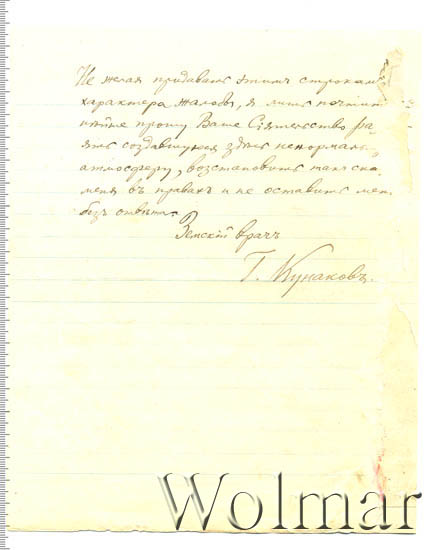 Не желая придавать этимъ строкамъ
характера жалобы, я лишь почтит
нѣйше прошу Ваше Сіятельство ра
ять создавшуюся здѣсь ненормальн
атмосферу, возстановить такъ ска
меня въ правахъ и не оставить мен
безъ отвѣта.
Земскій врачъ
Г. Кунаковъ.
Wolmar